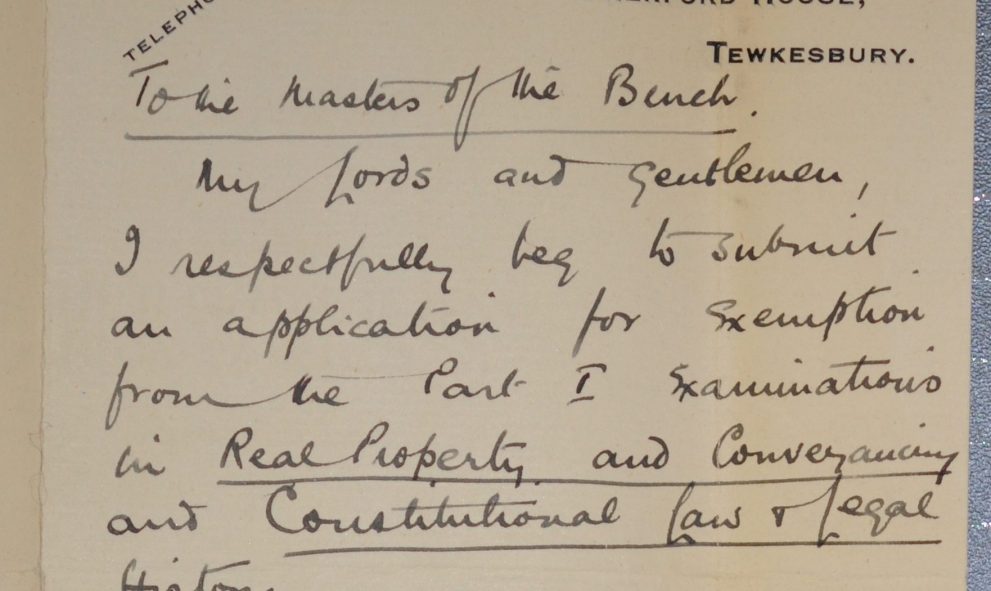 TELEPHO
HOUSE,
TEWKESBURY.
To the Masters of the Bench.
My Lords and Gentlemen,
I respectfully beg to submit
an application for Exemption
from the Part I Examinations
in Real Property and Conveyancing
and Constitutional Law & Legal
History